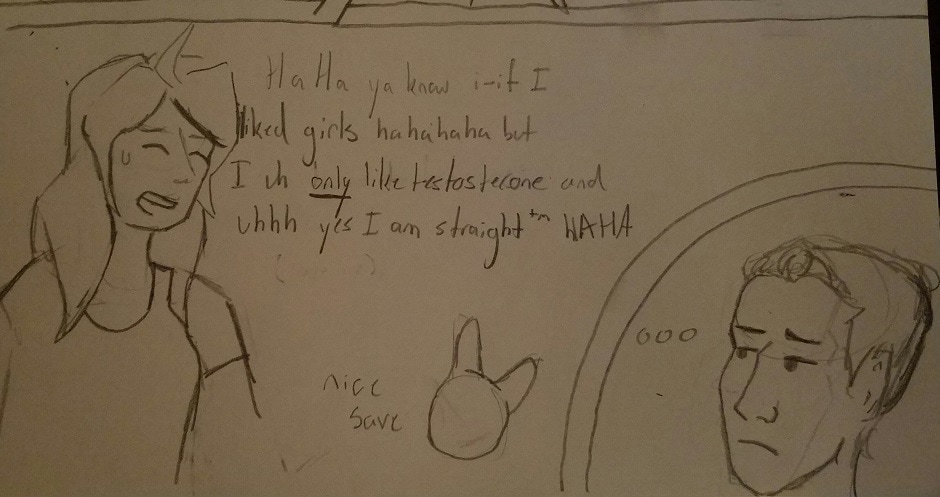 Ha Ha ya know i-if I
liked girls hahahaha but
I uh only like testosterone and
uhhh yes I am straight™ HAHA
nice
save
ooo